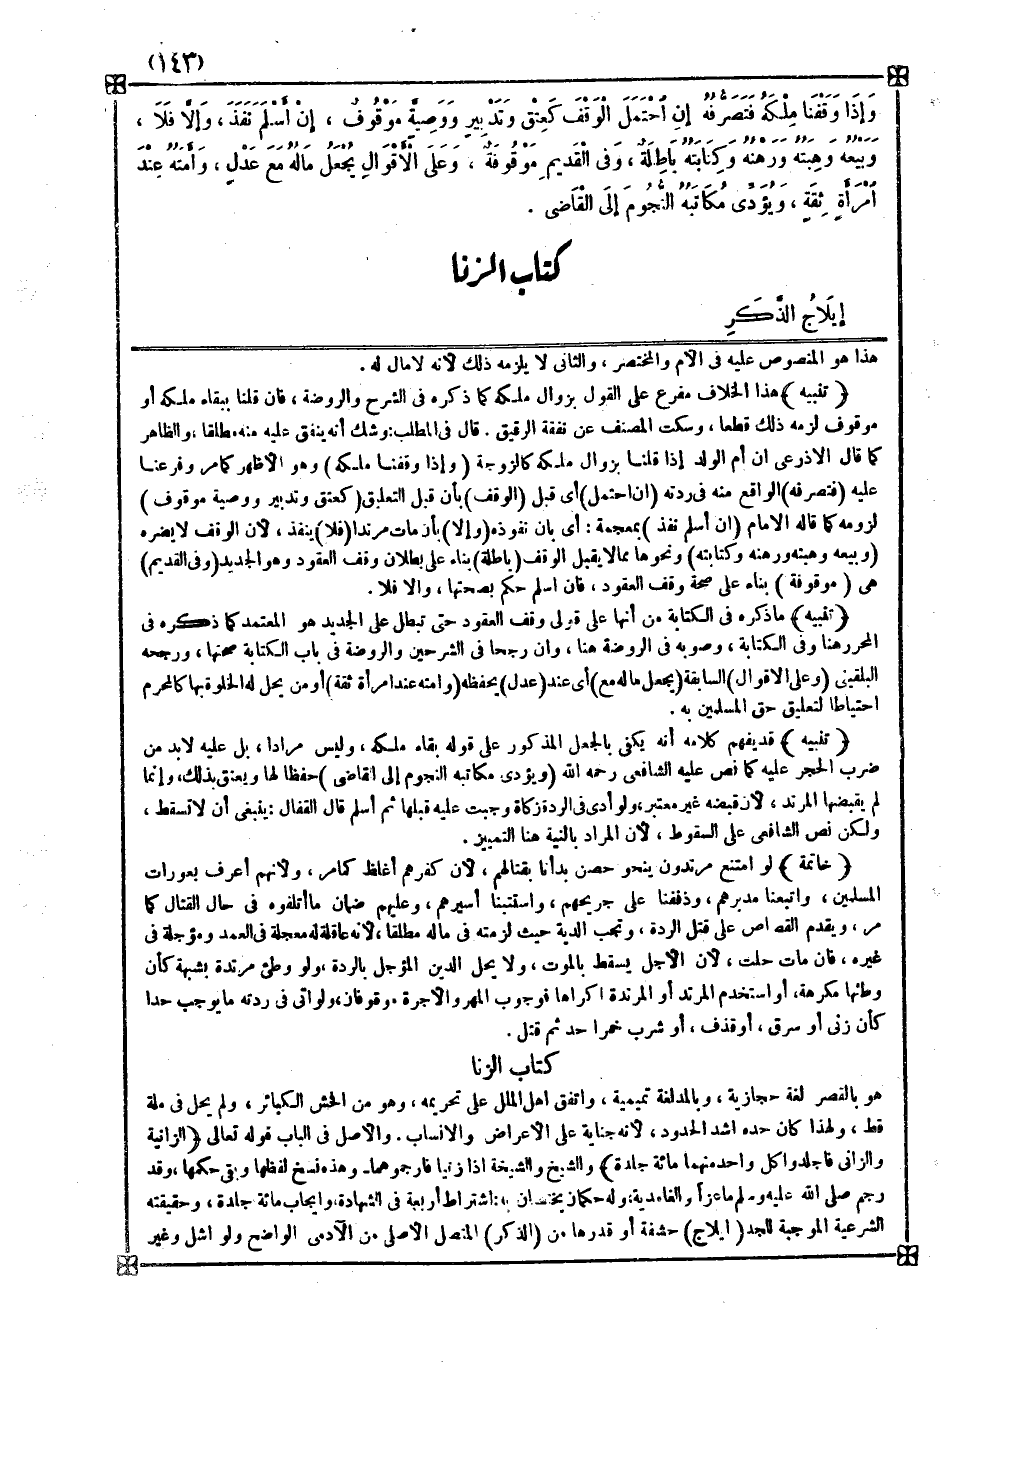 (١٤٣)
وَإِذَا وَقَفْنَا مِلْكَهُ فَتَصَرُّفُهُ إِنِ احْتَمَلَ الْوَقْفَ كَعِتْقٍ وَتَدْبِيرٍ وَوَصِيَّةٍ مَوْقُوفٌ ، إِنْ أَسْلَمَ نَفَذَ ، وَإِلَّا فَلَا ،
وَبَيْعُهُ وَهِبَتُهُ وَرَهْنُهُ وَكِتَابَتُهُ بَاطِلَةٌ ، وَفِى الْقَدِيمِ مَوْقُوفَةٌ ، وَعَلَى الْأَقْوَالِ يُجْعَلُ مَالُهُ مَعَ عَدْلٍ ، وَأَمَتُهُ عِنْدَ
امْرَأَةٍ ثِقَةٍ ، وَيُؤَدِّى مُكَاتَبُهُ النُّجُومَ إِلَى الْقَاضِى .
كتاب الزنا
إِيلَاجُ الذَّكَرِ
هذا هو المنصوص عليه فى الأم والمختصر ، والثانى لا يلزمه ذلك لأنه لا مال له .
﴿ تنبيه ﴾ هذا الخلاف مفرع على القول بزوال ملكه كما ذكره فى الشرح والروضة ، فان قلنا ببقاء ملكه أو
موقوف لزمه ذلك قطعا ، وسكت المصنف عن نفقة الرقيق . قال فى المطلب : وشك أنه ينفق عليه منه مطلقا ، والظاهر
كما قال الاذرعى ان أم الولد إذا قلنا بزوال ملكه كالزوجة (وإذا وقفنا ملكه) وهو الأظهر كما مر وفرعنا
عليه (فتصرفه) الواقع منه فى ردته (ان احتمل) أى قبل (الوقف) بأن قبل التعليق (كعتق وتدبير ووصية موقوف)
لزومه كما قاله الامام (ان أسلم نفذ) بمعجمة : أى بان نفوذه (وإلا) بأن مات مرتدا (فلا) ينفذ ، لأن الوقف لا يضره
(وبيعه وهبته ورهنه وكتابته) ونحوها مما لا يقبل الوقف (باطلة) بناء على بطلان وقف العقود وهو الجديد (وفى القديم)
هى (موقوفة) بناء على صحة وقف العقود ، فان اسلم حكم بصحتها ، والا فلا .
﴿ تنبيه ﴾ ما ذكره فى الكتابة من أنها على قولى وقف العقود حتى تبطل على الجديد هو المعتمد كما ذكره فى
المحرر هنا وفى الكتابة ، وصوبه فى الروضة هنا ، وان رجحا فى الشرحين والروضة فى باب الكتابة صحتها ، ورجحه
البلقينى (وعلى الاقوال) السابقة (يجعل ماله مع) أى عند (عدل) يحفظه (وامته عند امرأة ثقة) أو من يحل له الخلوة بها كالمحرم
احتياطا لتعليق حق المسلمين به .
﴿ تنبيه ﴾ قد يفهم كلامه أنه يكفى بالجعل المذكور على قوله بقاء ملكه ، وليس مرادا ، بل عليه لابد من
ضرب الحجر عليه كما نص عليه الشافعى رحمه الله (ويؤدى مكاتبه النجوم إلى القاضى) حفظا لها ويعتق بذلك ، وإنما
لم يقبضها المرتد ، لأن قبضه غير معتبر ، ولو أدى فى الردة زكاة وجبت عليه قبلها ثم أسلم قال القفال : ينبغى أن لا تسقط ،
ولكن نص الشافعى على السقوط ، لأن المراد بالنية هنا التمييز .
﴿ خاتمة ﴾ لو امتنع مرتدون بنحو حصن بدأنا بقتالهم ، لأن كفرهم أغلظ كما مر ، ولأنهم أعرف بعورات
المسلمين ، واتبعنا مدبرهم ، وذففنا على جريحهم ، واستتبنا أسيرهم ، وعليهم ضمان ما أتلفوه فى حال القتال كما
مر ، ويقدم القصاص على قتل الردة ، وتجب الدية حيث لزمته فى ماله مطلقا ، لأنه عاقلة له معجلة فى العمد ومؤجلة فى
غيره ، فان مات حلت ، لأن الأجل يسقط بالموت ، ولا يحل الدين المؤجل بالردة ، ولو وطئ مرتدة بشبهة كأن
وطئها مكرهة ، أو استخدم المرتد أو المرتدة اكراها فوجوب المهر والأجرة موقوفان ، ولو اتى فى ردته ما يوجب حدا
كأن زنى أو سرق ، أو قذف ، أو شرب خمرا حد ثم قتل .
كتاب الزنا
هو بالقصر لغة حجازية ، وبالمد لغة تميمية ، واتفق اهل الملل على تحريمه ، وهو من افحش الكبائر ، ولم يحل فى ملة
قط ، ولهذا كان حده اشد الحدود ، لأنه جناية على الأعراض والانساب . والأصل فى الباب قوله تعالى ﴿ الزانية
والزانى فاجلدوا كل واحد منهما مائة جلدة ﴾ والشيخ والشيخة اذا زنيا فارجموهما . وهذه نسخ لفظها وبقى حكمها ، وقد
رجم صلى الله عليه وسلم ماعزا والغامدية ، وله حكمان يختصان به : اشتراط أربعة فى الشهادة ، وايجاب مائة جلدة ، وحقيقته
الشرعية الموجبة للحد (ايلاج) حشفة أو قدرها من (الذكر) المتصل الأصلى من الآدمى الواضح ولو اشل وغير